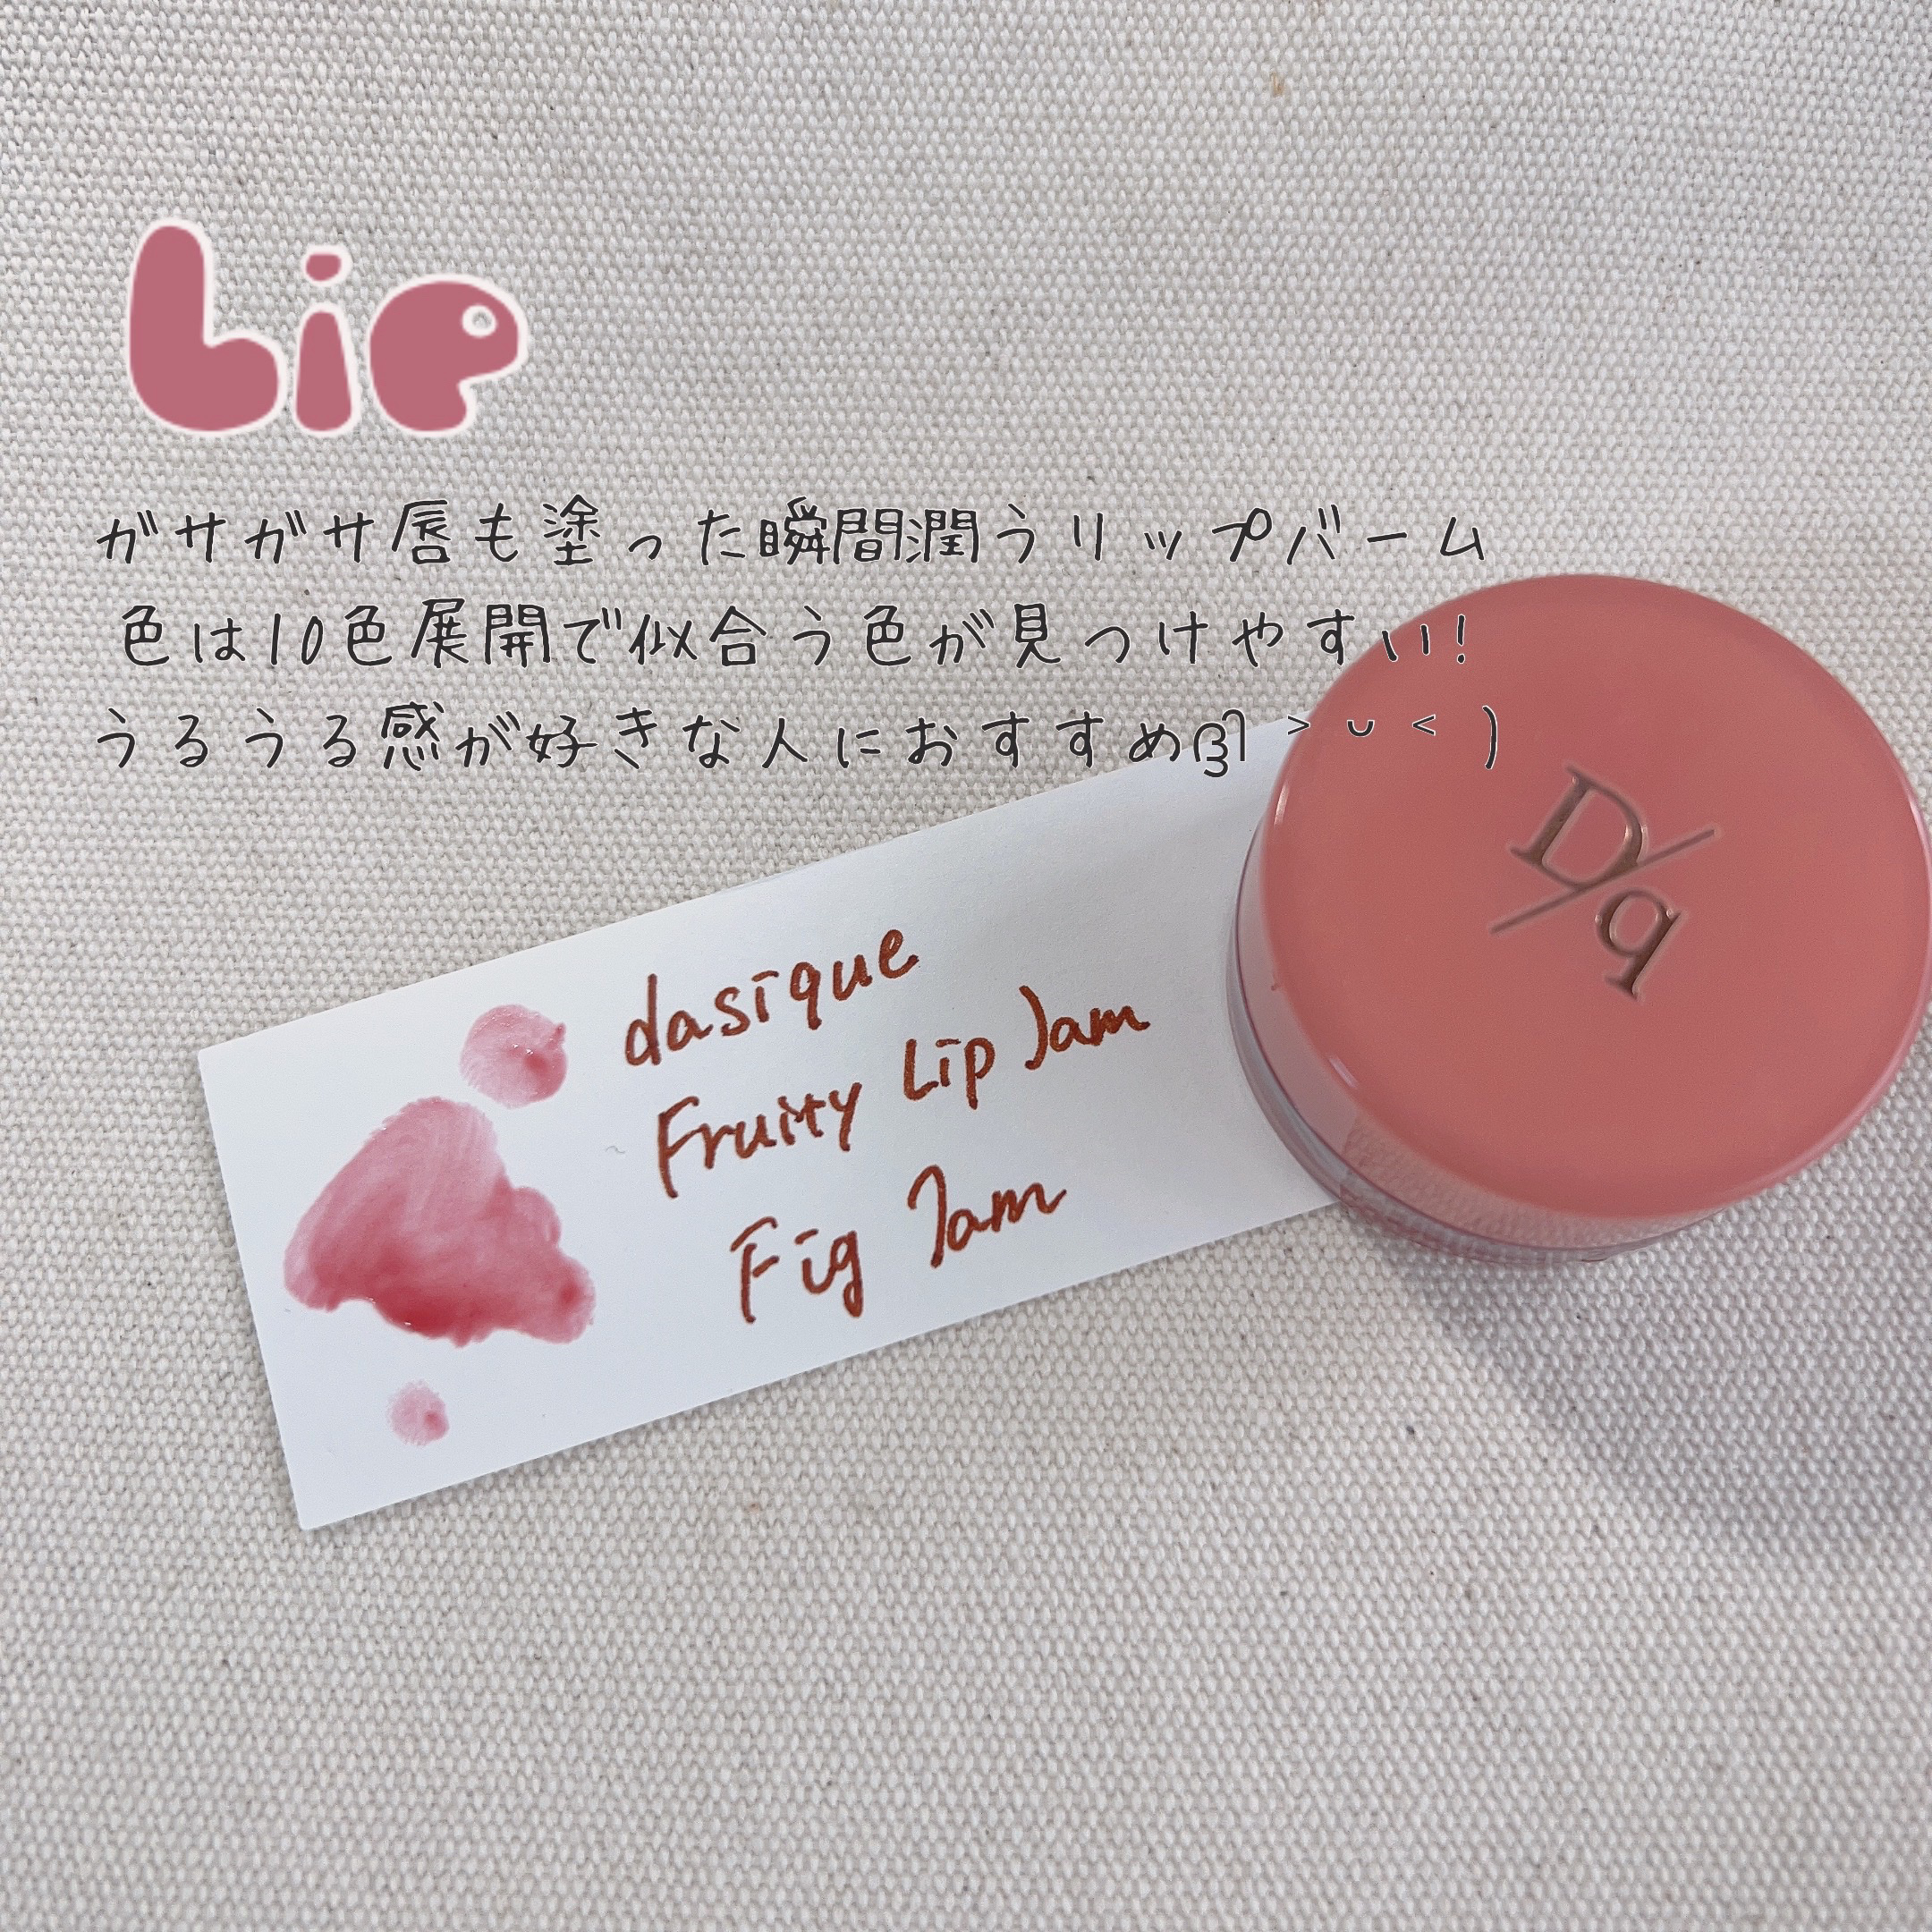 Lip
ガサガサ唇も塗った瞬間潤うリップバーム
色は10色展開で似合う色が見つけやすい!
うるうる感が好きな人におすすめദ്ദി ˃ ᴗ ˂ )
D/q
dasique
Fruity Lip Jam
Fig Jam